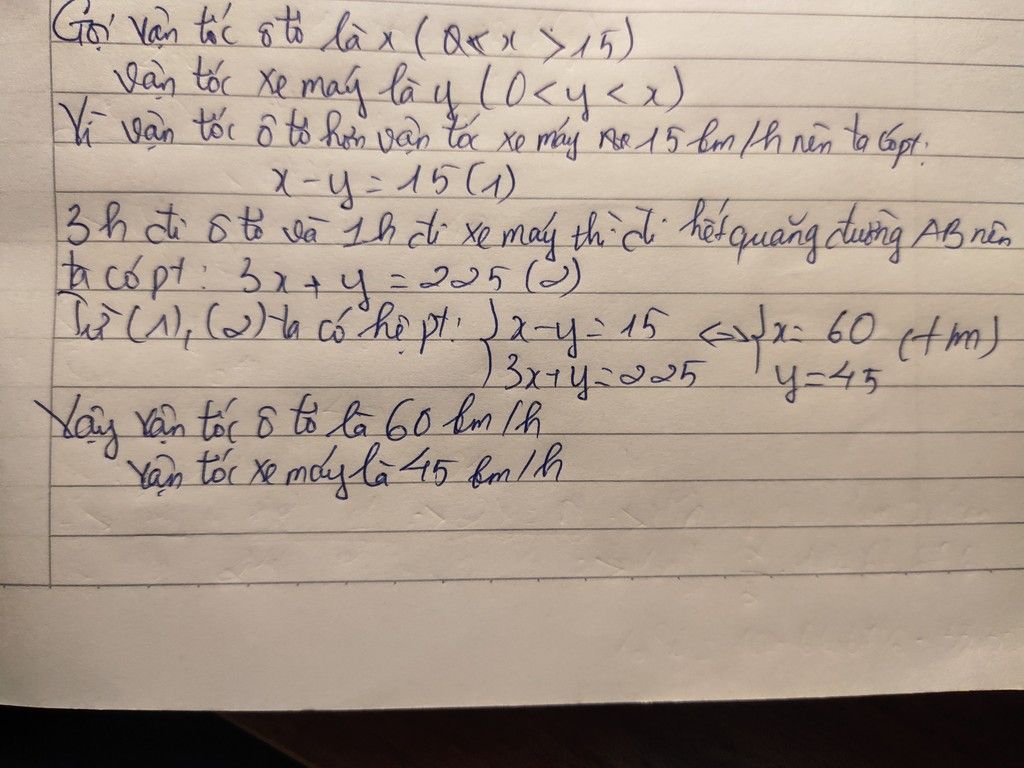 Gọi vận tốc ô tô là x ( 0 < x > 15)
vận tốc xe máy là y ( 0 < y < x )
Vì vận tốc ô tô hơn vận tốc xe máy 15 km/h nên ta có pt:
x - y = 15 (1)
3h đi ô tô và 1h đi xe máy thì đi hết quãng đường AB nên
ta có pt: 3x + y = 225 (2)
Từ (1), (2) ta có hệ pt: { x - y = 15 <=> { x = 60 (tm)
3x + y = 225 y = 45
Vậy vận tốc ô tô là 60 km/h
vận tốc xe máy là 45 km/h